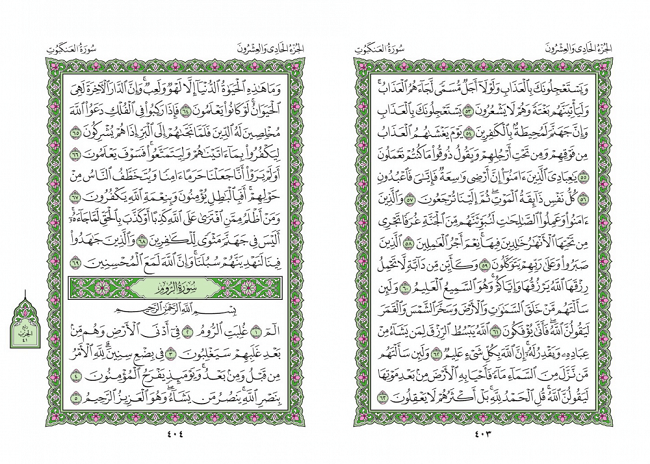 الجزء الحادي والعشرون
سورة العنكبوت
ويستعجلونك بالعذاب ولولا أجل مسمى لجاءهم العذاب
وليأتينهم بغتة وهم لا يشعرون ٥٣ يستعجلونك بالعذاب
وإن جهنم لمحيطة بالكافرين ٥٤ يوم يغشاهم العذاب
من فوقهم ومن تحت أرجلهم ويقول ذوقوا ما كنتم تعملون
٥٥ يا عبادي الذين ءامنوا إن أرضي واسعة فإياي فاعبدون
٥٦ كل نفس ذائقة الموت ثم إلينا ترجعون ٥٧ والذين
ءامنوا وعملوا الصالحات لنبوئنهم من الجنة غرفا تجري
من تحتها الأنهار خالدين فيها نعم أجر العاملين ٥٨ الذين
صبروا وعلى ربهم يتوكلون ٥٩ وكأين من دابة لا تحمل
رزقها الله يرزقها وإياكم وهو السميع العليم ٦٠ ولئن
سألتهم من خلق السماوات والأرض وسخر الشمس والقمر
ليقولن الله فأنى يؤفكون ٦١ الله يبسط الرزق لمن يشاء من
عباده ويقدر له إن الله بكل شيء عليم ٦٢ ولئن سألتهم
من نزل من السماء ماء فأحيا به الأرض من بعد موتها
ليقولن الله قل الحمد لله بل أكثرهم لا يعقلون ٦٣
٤٠٣
الجزء الحادي والعشرون
سورة العنكبوت
وما هذه الحياة الدنيا إلا لهو ولعب وإن الدار الآخرة لهي
الحيوان لو كانوا يعلمون ٦٤ فإذا ركبوا في الفلك دعوا الله
مخلصين له الدين فلما نجاهم إلى البر إذا هم يشركون ٦٥
ليكفروا بما ءاتيناهم وليتمتعوا فسوف يعلمون ٦٦
أولم يروا أنا جعلنا حرما ءامنا ويتخطف الناس من
حولهم أفبالباطل يؤمنون وبنعمة الله يكفرون ٦٧
ومن أظلم ممن افترى على الله كذبا أو كذب بالحق لما جاءه
أليس في جهنم مثوى للكافرين ٦٨ والذين جاهدوا
فينا لنهدينهم سبلنا وإن الله لمع المحسنين ٦٩
سورة الروم
بسم الله الرحمن الرحيم
الم ١ غلبت الروم ٢ في أدنى الأرض وهم من
بعد غلبهم سيغلبون ٣ في بضع سنين لله الأمر
من قبل ومن بعد ويومئذ يفرح المؤمنون ٤
بنصر الله ينصر من يشاء وهو العزيز الرحيم ٥
٤٠٤